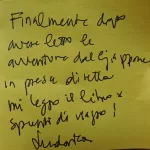 Finalmente dopo
avere letto le
avventure dal Giappone
in presa diretta
mi leggo il libro x
spunti di viaggio!